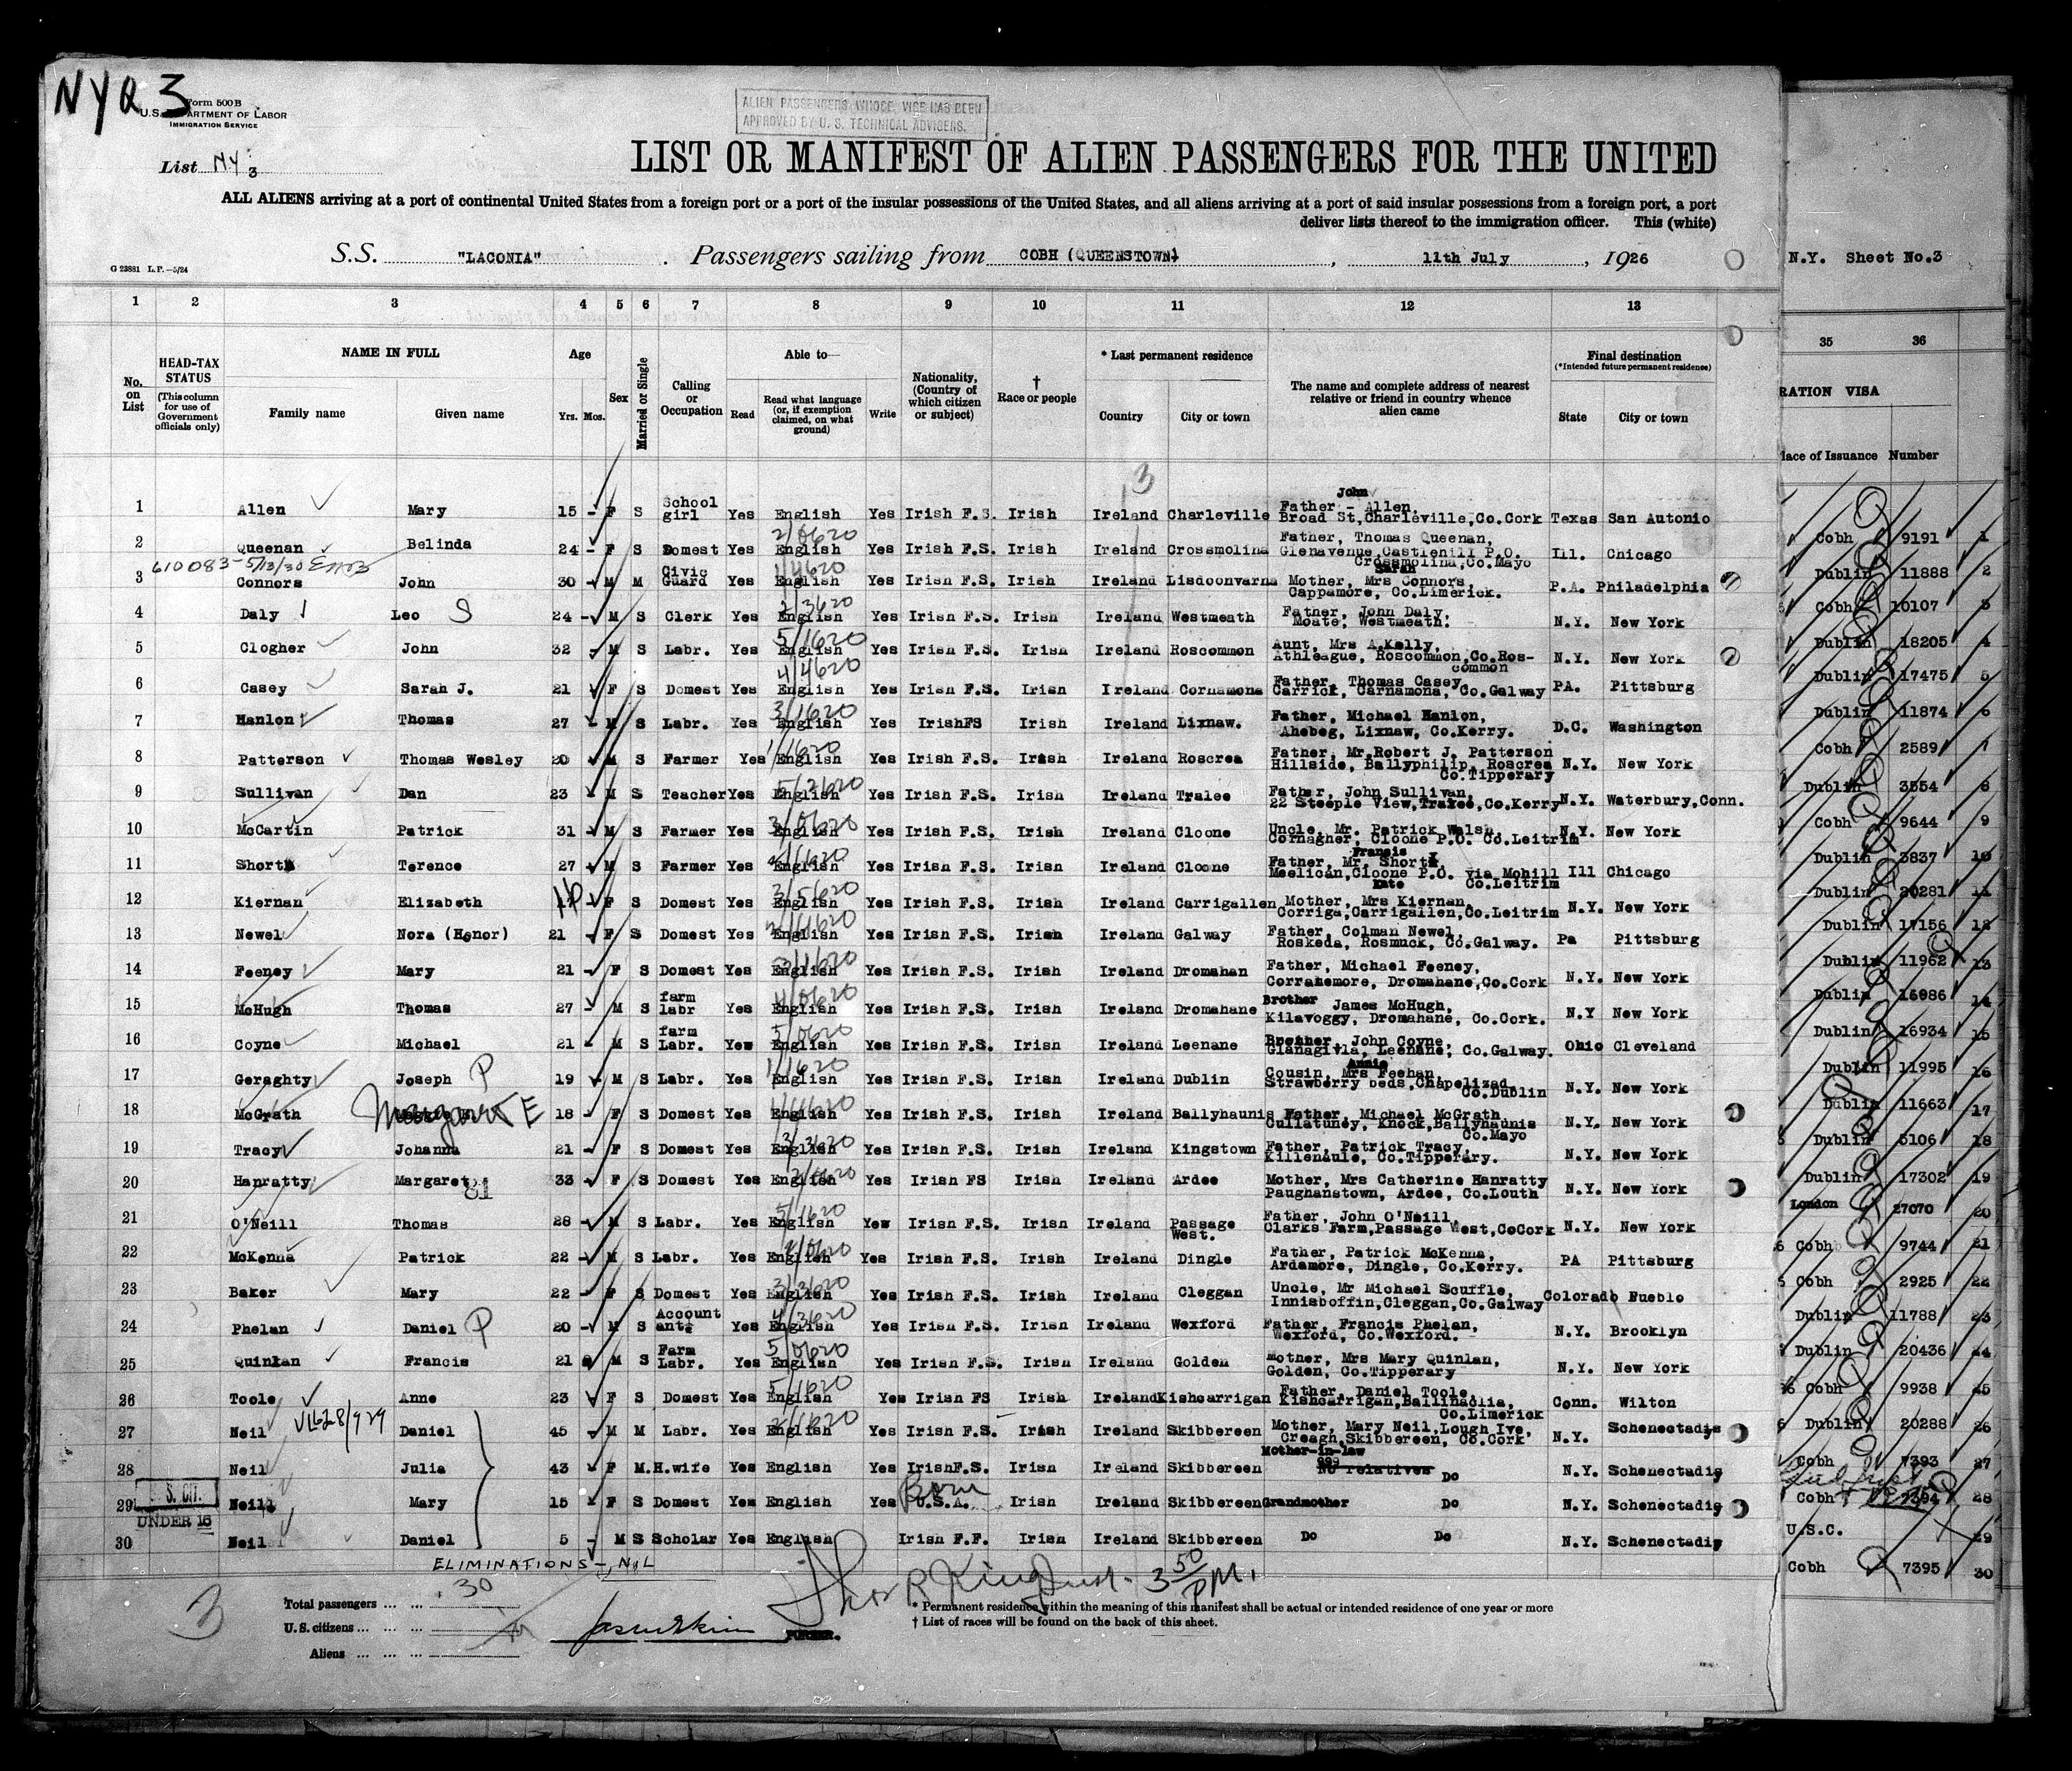 NYQ 3
Form 500 B
U.S. DEPARTMENT OF LABOR
IMMIGRATION SERVICE
ALIEN PASSENGERS WHOSE VISE HAS BEEN
APPROVED BY U. S. TECHNICAL ADVISERS.
List NY 3
LIST OR MANIFEST OF ALIEN PASSENGERS FOR THE UNITED
ALL ALIENS arriving at a port of continental United States from a foreign port or a port of the insular possessions of the United States, and all aliens arriving at a port of said insular possessions from a foreign port, a port
deliver lists thereof to the immigration officer. This (white)
S.S. "LACONIA" . Passengers sailing from COBH (QUEENSTOWN) , 11th July , 1926
G 23881 L.P.—5/24
N.Y. Sheet No.3
1 2 3 4 5 6 7 8 9 10 11 12 13 35 36
No. on List
HEAD-TAX STATUS (This column for use of Government officials only)
NAME IN FULL
Family name Given name
Age Yrs. Mos.
Sex
Married or Single
Calling or Occupation
Able to— Read Read what language (or, if exemption claimed, on what ground) Write
Nationality, (Country of which citizen or subject)
† Race or people
* Last permanent residence
Country City or town
The name and complete address of nearest relative or friend in country whence alien came
Final destination (*Intended future permanent residence)
State City or town
RATION VISA
lace of Issuance Number
13
1 Allen Mary 15 - F S School girl Yes English Yes Irish F.S. Irish Ireland Charleville John Father - Allen, Broad St,Charleville,Co.Cork Texas San Antonio Cobh 9191 1
2 Queenan Belinda 24 - F S Domest Yes English Yes Irish F.S. Irish Ireland Crossmolina Father, Thomas Queenan, Glenavenue,Castlehill P.O. Crossmolina,Co.Mayo Ill. Chicago Dublin 11888 2
610083-5/12/30
3 Connors John 30 - M M Civic Guard Yes English Yes Irish F.S. Irish Ireland Lisdoonvarna Sarah Mother, Mrs Connors, Cappamore, Co.Limerick. P.A. Philadelphia Cobh 10107 3
4 Daly Leo S 24 - M S Clerk Yes English Yes Irish F.S. Irish Ireland Westmeath Father, John Daly, Moate, Westmeath. N.Y. New York Dublin 18205 4
5 Clogher John 32 - M S Labr. Yes English Yes Irish F.S. Irish Ireland Roscommon Aunt, Mrs A.Kelly, Athleague, Roscommon,Co.Roscommon N.Y. New York Dublin 17475 5
6 Casey Sarah J. 21 F S Domest Yes English Yes Irish F.S. Irish Ireland Cornamona Father, Thomas Casey Carrick, Carnamona, Co.Galway PA. Pittsburg Dublin 11874 6
7 Hanlon Thomas 27 - M S Labr. Yes English Yes IrishFS Irish Ireland Lixnaw. Father, Michael Hanlon, Ahabeg, Lixnaw, Co.Kerry. D.C. Washington Cobh 2589 7
8 Patterson Thomas Wesley 20 M S Farmer Yes English Yes Irish F.S. Irish Ireland Roscrea Father, Mr.Robert J. Patterson Hillside, Ballyphilip, Roscrea Co.Tipperary N.Y. New York Dublin 3554 8
9 Sullivan Dan 23 - M S Teacher Yes English Yes Irish F.S. Irish Ireland Tralee Father, John Sullivan, 22 Steeple View,Tralee,Co.Kerry N.Y. Waterbury,Conn. Cobh 9644 9
10 McCartin Patrick 31 - M S Farmer Yes English Yes Irish F.S. Irish Ireland Cloone Uncle, Mr. Patrick Walsh, Cornagher, Cloone P.O. Co.Leitrim N.Y. New York Dublin 3837 10
11 Short Terence 27 - M S Farmer Yes English Yes Irish F.S. Irish Ireland Cloone Francis Father, Mr. Short, Meelican,Cloone P.O. via Mohill Co.Leitrim Ill Chicago Dublin 20281 11
12 Kiernan Elizabeth F S Domest Yes English Yes Irish F.S. Irish Ireland Carrigallen Kate Mother, Mrs Kiernan, Corriga,Carrigallen,Co.Leitrim N.Y. New York Dublin 17156 12
13 Newel Nora (Honor) 21 - F S Domest Yes English Yes Irish F.S. Irish Ireland Galway Father, Colman Newel, Roskeda, Rosmuck, Co.Galway. Pa Pittsburg Dublin 11962 13
14 Feeney Mary 21 - F S Domest Yes English Yes Irish F.S. Irish Ireland Dromahan Father, Michael Feeney, Corranemore, Dromahane,Co.Cork N.Y. New York Dublin 16986 14
15 McHugh Thomas 27 - M S farm labr Yes English Yes Irish F.S. Irish Ireland Dromahane Brother James McHugh, Kilavoggy, Dromahane, Co.Cork. N.Y New York Dublin 16934 15
16 Coyne Michael 21 - M S farm Labr. Yes English Yes Irish F.S. Irish Ireland Leenane Brother, John Coyne, Glanagivla, Leenane, Co.Galway. Ohio Cleveland Dublin 11995 16
17 Geraghty Joseph P 19 M S Labr. Yes English Yes Irish F.S. Irish Ireland Dublin Annie Cousin, Mrs Feehan, Strawberry beds,Chapelizod Co.Dublin N.Y. New York Dublin 11663 17
18 McGrath Margaret E 18 - F S Domest Yes English Yes Irish F.S. Irish Ireland Ballyhaunis Father, Michael McGrath Cullatuney, Knock,Ballyhaunis Co.Mayo N.Y. New York Dublin 5106 18
19 Tracy Johanna 21 - F S Domest Yes English Yes Irish F.S. Irish Ireland Kingstown Father, Patrick Tracy, Killenaule, Co.Tipperary. N.Y. New York Dublin 17302 19
20 Hanratty Margaret 81 33 - F S Domest Yes English Yes Irish FS Irish Ireland Ardee Mother, Mrs Catherine Hanratty Paughanstown, Ardee, Co.Louth N.Y. New York London 27070 20
21 O'Neill Thomas 28 - M S Labr. Yes English Yes Irish F.S. Irish Ireland Passage West. Father, John O'Neill, Clarks Farm,Passage West,CoCork N.Y. New York Cobh 9744 21
22 McKenna Patrick 22 - M S Labr. Yes English Yes Irish F.S. Irish Ireland Dingle Father, Patrick McKenna, Ardamore, Dingle, Co.Kerry. PA Pittsburg Cobh 2925 22
23 Baker Mary 22 - F S Domest Yes English Yes Irish F.S. Irish Ireland Cleggan Uncle, Mr Michael Scuffle, Innisboffin,Cleggan,Co.Galway Colorado Pueblo Dublin 11788 23
24 Phelan Daniel P 20 - M S Accountant Yes English Yes Irish F.S. Irish Ireland Wexford Father, Francis Phelan, Wexford, Co.Wexford. N.Y. Brooklyn Dublin 20436 24
25 Quinlan Francis 21 M S Farm Labr. Yes English Yes Irish F.S. Irish Ireland Golden Mother, Mrs Mary Quinlan, Golden, Co.Tipperary N.Y. New York Cobh 9938 25
26 Toole Anne 23 F S Domest Yes English Yes Irish FS Irish Ireland Kishcarrigan Father, Daniel Toole, Kishcarrigan,Ballinaclia, Co.Limerick Conn. Wilton Dublin 20288 26
27 Neil Daniel 45 - M M Labr. Yes English Yes Irish F.S. Irish Ireland Skibbereen Mother, Mary Neil,Lough Ive, Creagh,Skibbereen, Co.Cork N.Y. Schenectadis Cobh 7393 27
28 Neil Julia 43 - F M. H.wife Yes English Yes IrishF.S. Irish Ireland Skibbereen Mother-in-law No relatives Do N.Y. Schenectadiy Cobh 7394 28
U. S. CIT. UNDER 16
29 Neil Mary 15 - F S Domest Yes English Yes Born U.S.A. Irish Ireland Skibbereen Grandmother Do N.Y. Schenectadiy U.S.C. 29
30 Neil Daniel 5 - M S Scholar Yes English Irish F.F. Irish Ireland Skibbereen Do Do N.Y. Schenectadiy Cobh 7395 30
ELIMINATIONS - NIL
3 50/PM.
Total passengers ... ... 30
U. S. citizens ... ... ...
Aliens ... ... ...
3
PURSER.
* Permanent residence within the meaning of this manifest shall be actual or intended residence of one year or more
† List of races will be found on the back of this sheet.